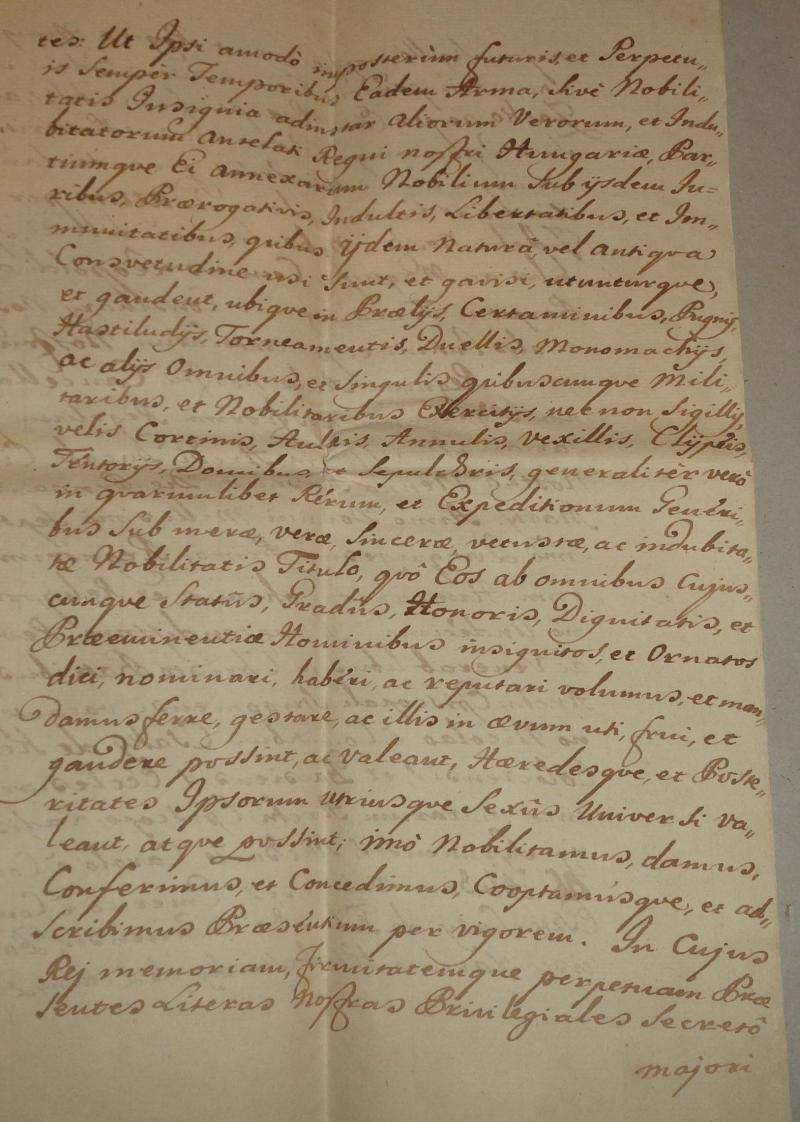 tes: Ut Ipsi amodò imposterùm futuris, et Perpetu„
is Sempèr Temporibus Eadem Arma, Sivè Nobili„
tatis Insignia adinstar aliorum Verorum, et Indu„
bitatorum antelati Regni nostri Hungariæ, Par„
tiumque Ei annexarum Nobilium Sub ijsdem Ju=
ribus, Prærogativis, Indultis, Libertatibus, et Im„
munitatibus, quibus ijdem naturâ, vel antiqva
Consvetudine usi sunt, et gavisi, utunturqve,
et gaudent, ubiqve in Prælijs, Certaminibus, Pugnis,
Hastiludijs, Torneamentis, Duellis, Monomachijs,
ac alijs Omnibus, et Singulis qvibuscunqve Mili„
taribus, et Nobilitaribus Exercitijs, nec non Sigillis,
velis Cortinis, Aulæis, Annulis, vexillis, Clijpeis,
Tentorijs, Domibus et Sepulchris, generalitèr verò
in qvarumlibet Rérum, et Expeditionum Genéri„
bus Sub meræ, veræ, Sinceræ, vetustæ, ac indubita„
tæ Nobilitatis Titulo, qvô Eos ab omnibus Cujus„
cunqve Statûs, Gradûs, Honoris, Dignitatis, et
Præeminentiæ Hominibus insignitos, et Ornatos
dici, nominari, habéri, ac reputari volumus, et man„
damus ferre, gestare, ac illis in ævum uti, frui, et
gaudere possint, ac valeant, Hæredesqve, et Poste„
ritates Ipsorum utriusqve Sexûs Universi va„
leant, atqve possint; imò Nobilitamus, damus,
Conferimus, et Concedimus, Cooptamúsqve, et ad„
scribimus Præséntium per vigorem. In Cujus
Rej memoriam, firmitatemqve perpetuam Præ
sentes Literas Nostras Privilegiales Secretô
majori